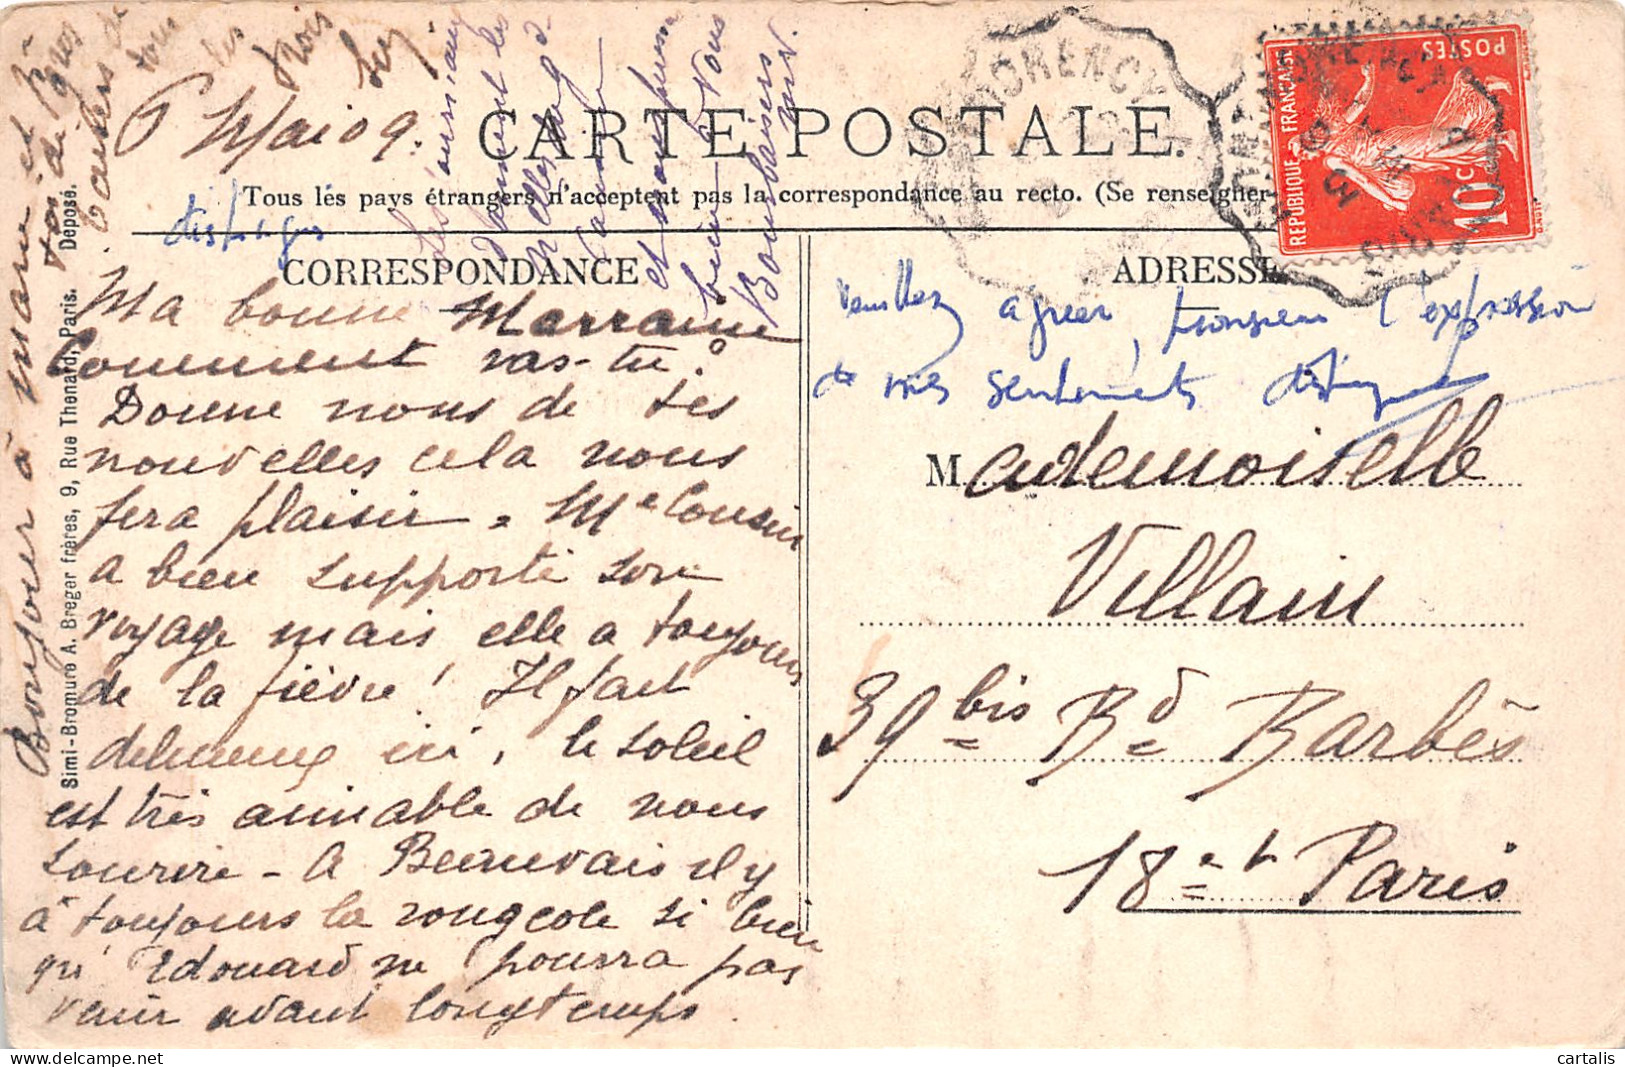 6 Mai 09.
CARTE POSTALE.
Tous les pays étrangers n'acceptent pas la correspondance au recto. (Se renseigner
distingués
CORRESPONDANCE
Ma bonne Marraine
Comment vas-tu ?
Donne nous de tes
nouvelles cela nous
fera plaisir. Me Cousin
a bien supporté son
voyage mais elle a toujours
de la fièvre ! Il fait
ici, le soleil
est très aimable de nous
sourire - A Beauvais il y
a toujours la rougeole si bien
qu' Edouard ne pourra pas
venir avant longtemps.
Bonjour à marraine et
gros
baisers de
tous
les trois
Bons baisers
Simi-Bromure A. Breger frères, 9, Rue Thenard, Paris. Déposé.
ADRESSE
Veuillez agréer, monsieur l'expression
de mes sentiments distingués
Mademoiselle
Villain
39 bis Bd Barbès
18e arrt Paris
REPUBLIQUE FRANÇAISE
POSTES
10 c
cartalis